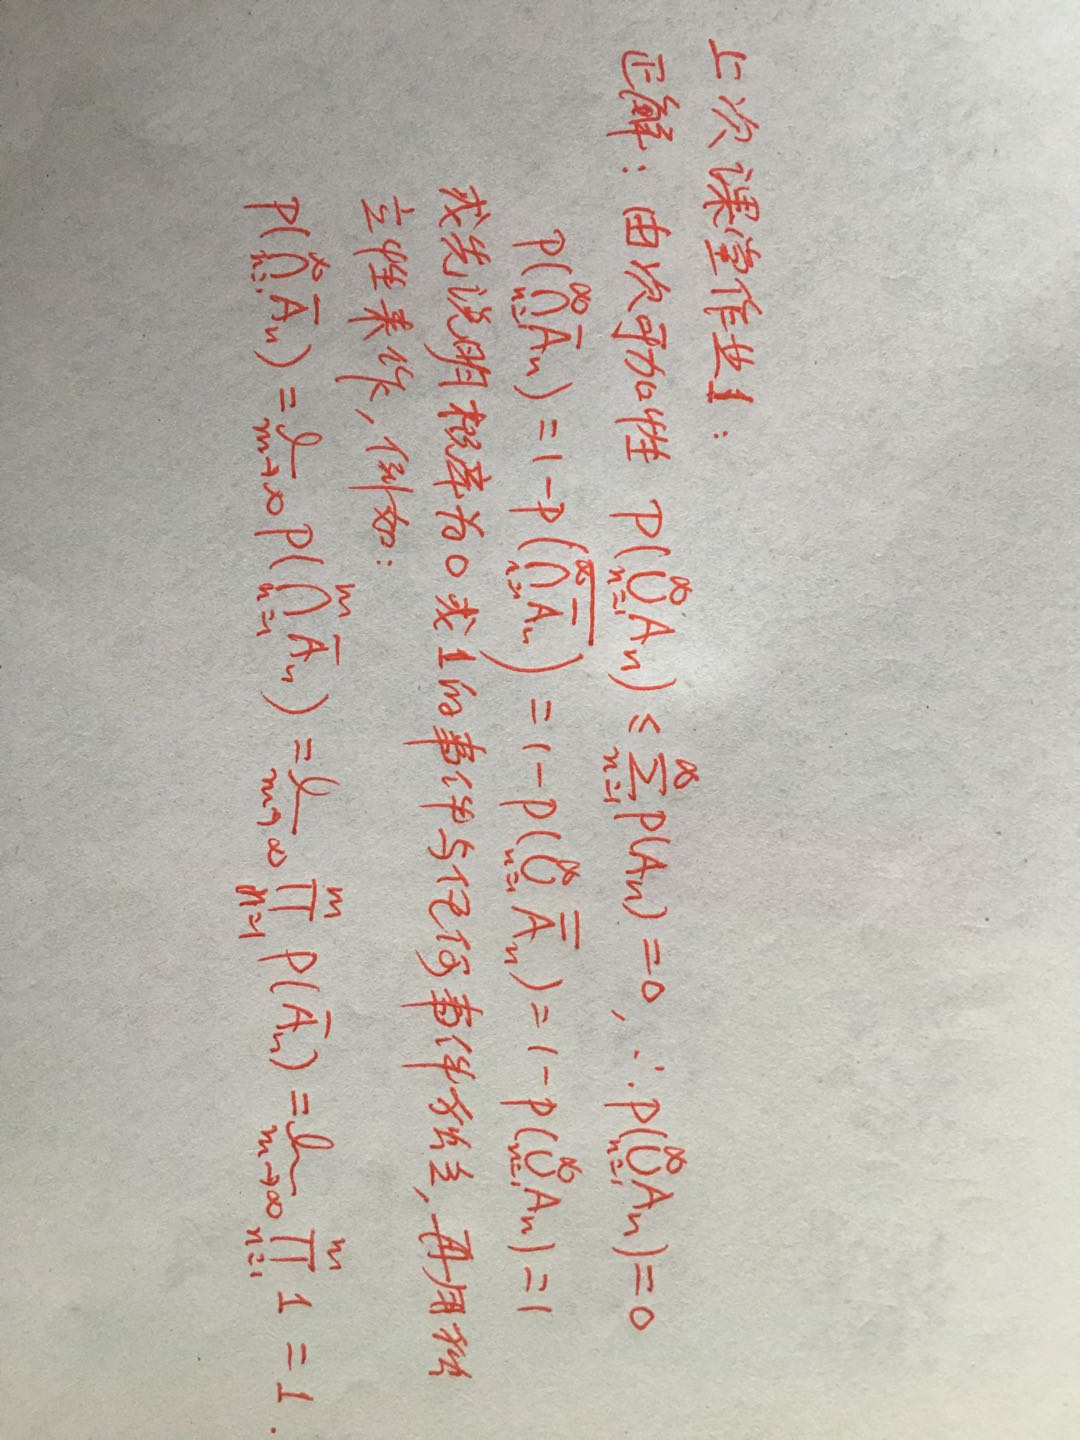 上次课堂作业1:
正解：由次可加性 P(⋃_{n=1}^{∞} A_n) ≤ ∑_{n=1}^{∞} P(A_n) = 0, ∴ P(⋃_{n=1}^{∞} A_n) = 0
P(⋂_{n=1}^{∞} \overline{A}_n) = 1 - P(\overline{⋂_{n=1}^{∞} \overline{A}_n}) = 1 - P(⋃_{n=1}^{∞} \overline{\overline{A}}_n) = 1 - P(⋃_{n=1}^{∞} A_n) = 1
或先说明概率为0或1的事件与任何事件独立，再用独
立性来作，例如：
P(⋂_{n=1}^{∞} \overline{A}_n) = lim_{m→∞} P(⋂_{n=1}^{m} \overline{A}_n) = lim_{m→∞} ∏_{n=1}^{m} P(\overline{A}_n) = lim_{m→∞} ∏_{n=1}^{m} 1 = 1.